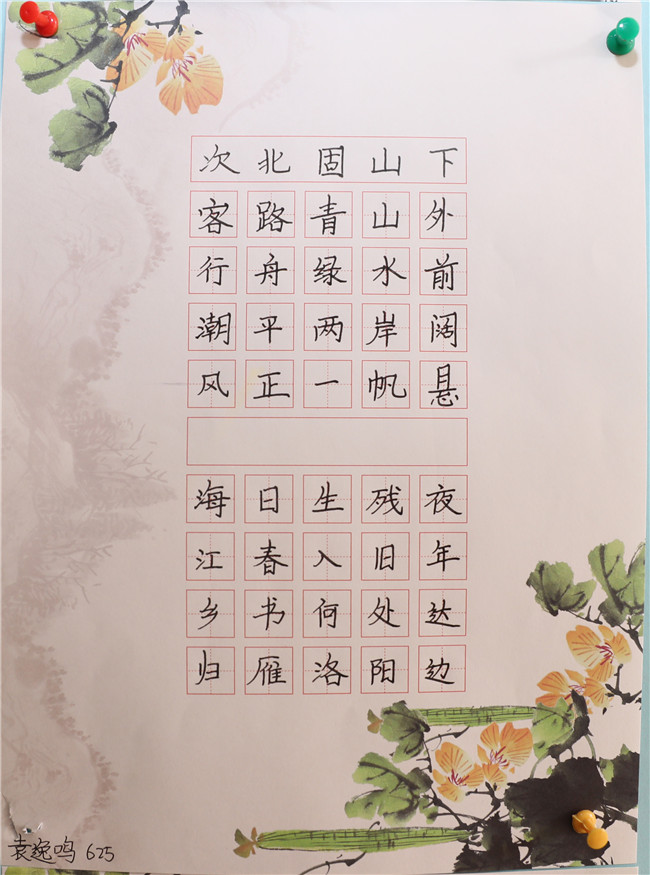 次北固山下
客路青山外
行舟绿水前
潮平两岸阔
风正一帆悬
海日生残夜
江春入旧年
乡书何处达
归雁洛阳边
袁逸鸣 625